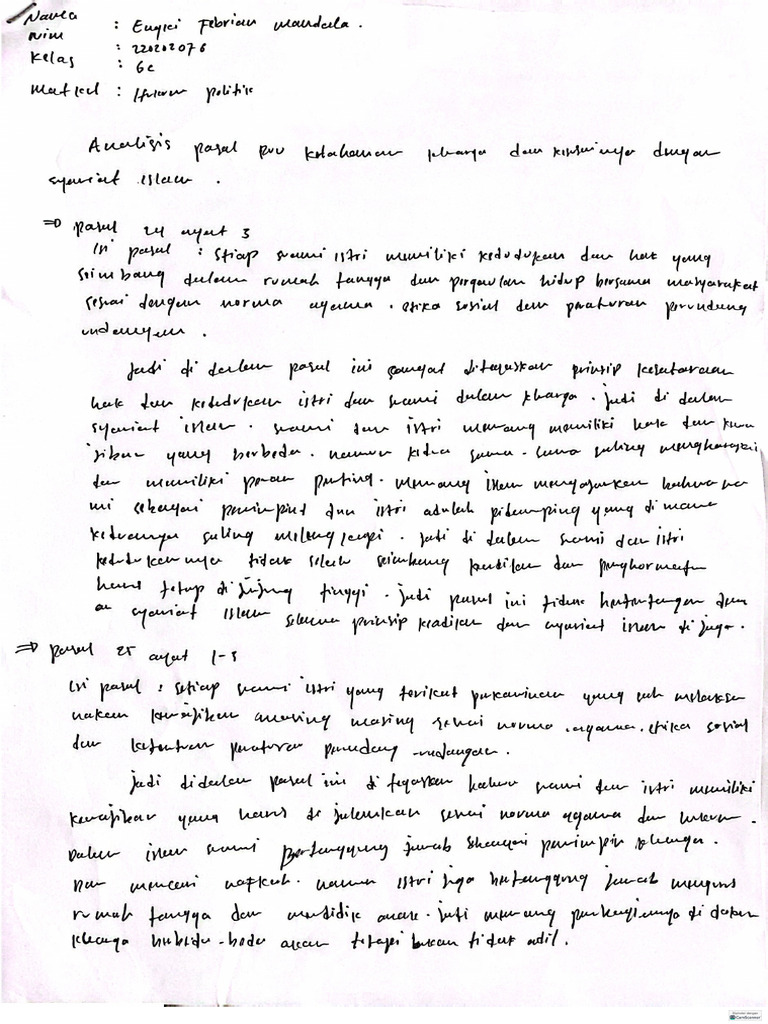 Nama : Engki Febrian mandala .
Nim : 220202076
Kelas : 6c
Matkul : Hukum politik
Analisis pasal RUU ketahanan klharga dan kesesuainya dengan
syariat islam .
⇒ pasal 24 ayat 3
Isi pasal : Setiap suami istri memiliki kedudukan dan hak yang
seimbang dalam rumah tangga dan pergaulan hidup bersama masyarakat
sesuai dengan norma agama . etika sosial dan peraturan perundang
undangan .
Jadi di dalam pasal ini sangat ditegaskan prinsip kesetaraan
hak dan kedudukan istri dan suami dalam klharga . jadi di dalam
syariat islam . suami dan istri memang memiliki hak dan kewa
jiban yang berbeda . namun kedua sama - sama saling menghargai
dan memiliki peran penting . memang islam mengajarkan bahwa sua
mi sebagai pemimpin dan istri adalah pidamping yang di mana
keduanya saling melengkapi . jadi di dalam suami dan istri
kedudukannya tidak selalu seimbang keadilan dan penghormatan
harus tetap di junjung tinggi . jadi pasal ini tidak bertentangan deng
an syariat islam selama prinsip keadilan dan syariat islam di jaga .
⇒ pasal 25 ayat 1-3
Isi pasal : setiap suami istri yang terikat pekawinan yang sah melaksa
nakan kewajiban masing masing sesuai norma . agama . etika sosial
dan ketentuan peraturan perundang - undangan .
Jadi didalam pasal ini di tegaskan bahwa suami dan istri memiliki
kewajiban yang harus di jalankan sesuai norma agama dan hukum .
Dalam islam suami bertanggung jawab sebagai pemimpin klharga .
Dan mencari nafkah . namun istri juga bertanggung jawab mengurus
rumah tangga dan mendidik anak . jadi memang pembagiannya di dalam
klharga berbeda - beda akan tetapi bukan tidak adil .
CamScanner